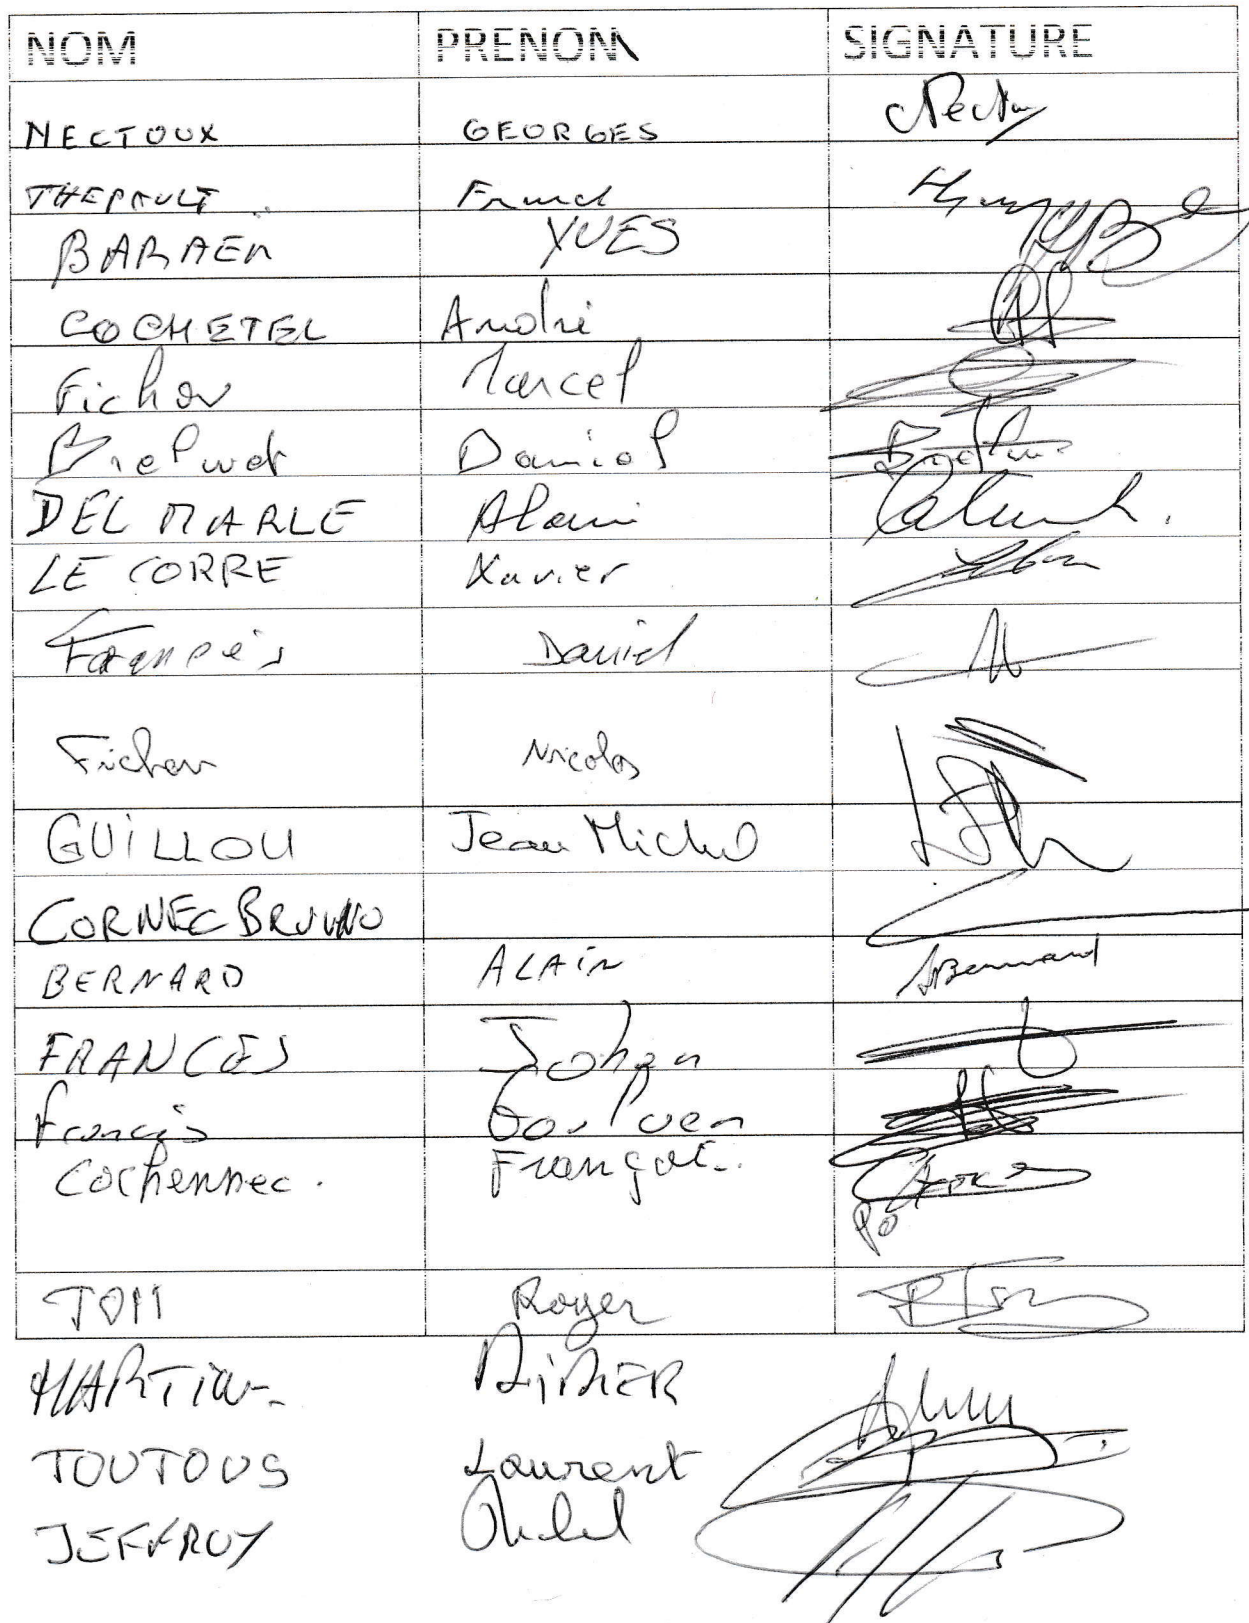 NOM PRENOM SIGNATURE
NECTOUX GEORGES
THEPAULT Franck
BARAER YVES
COCHETEL André
Fichou Marcel
Brelivet Daniel
DELMARLE Alain
LE CORRE Xavier
Francès Daniel
Fichou Nicolas
GUILLOU Jean Michel
CORNEC BRUNO
BERNARD ALAIN ABernard
FRANCES Johan
Francis Goulven
Cochennec. François
Po
TOM Roger
MARTIN DIDIER
TOUTOUS Laurent
JEFFROY Michel